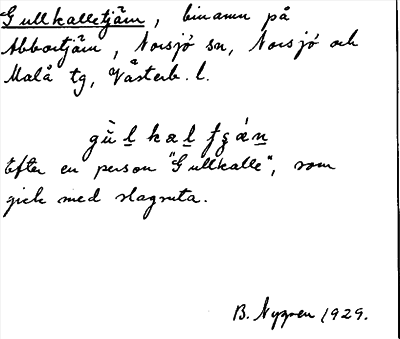 Gullkalletjärn, binamn på
Abbortjärn, Norsjö sn, Norsjö och
Malå tg, Västerb. l.
Efter en person "Gullkalle", som
gick med slagruta.
B. Nygren 1929.